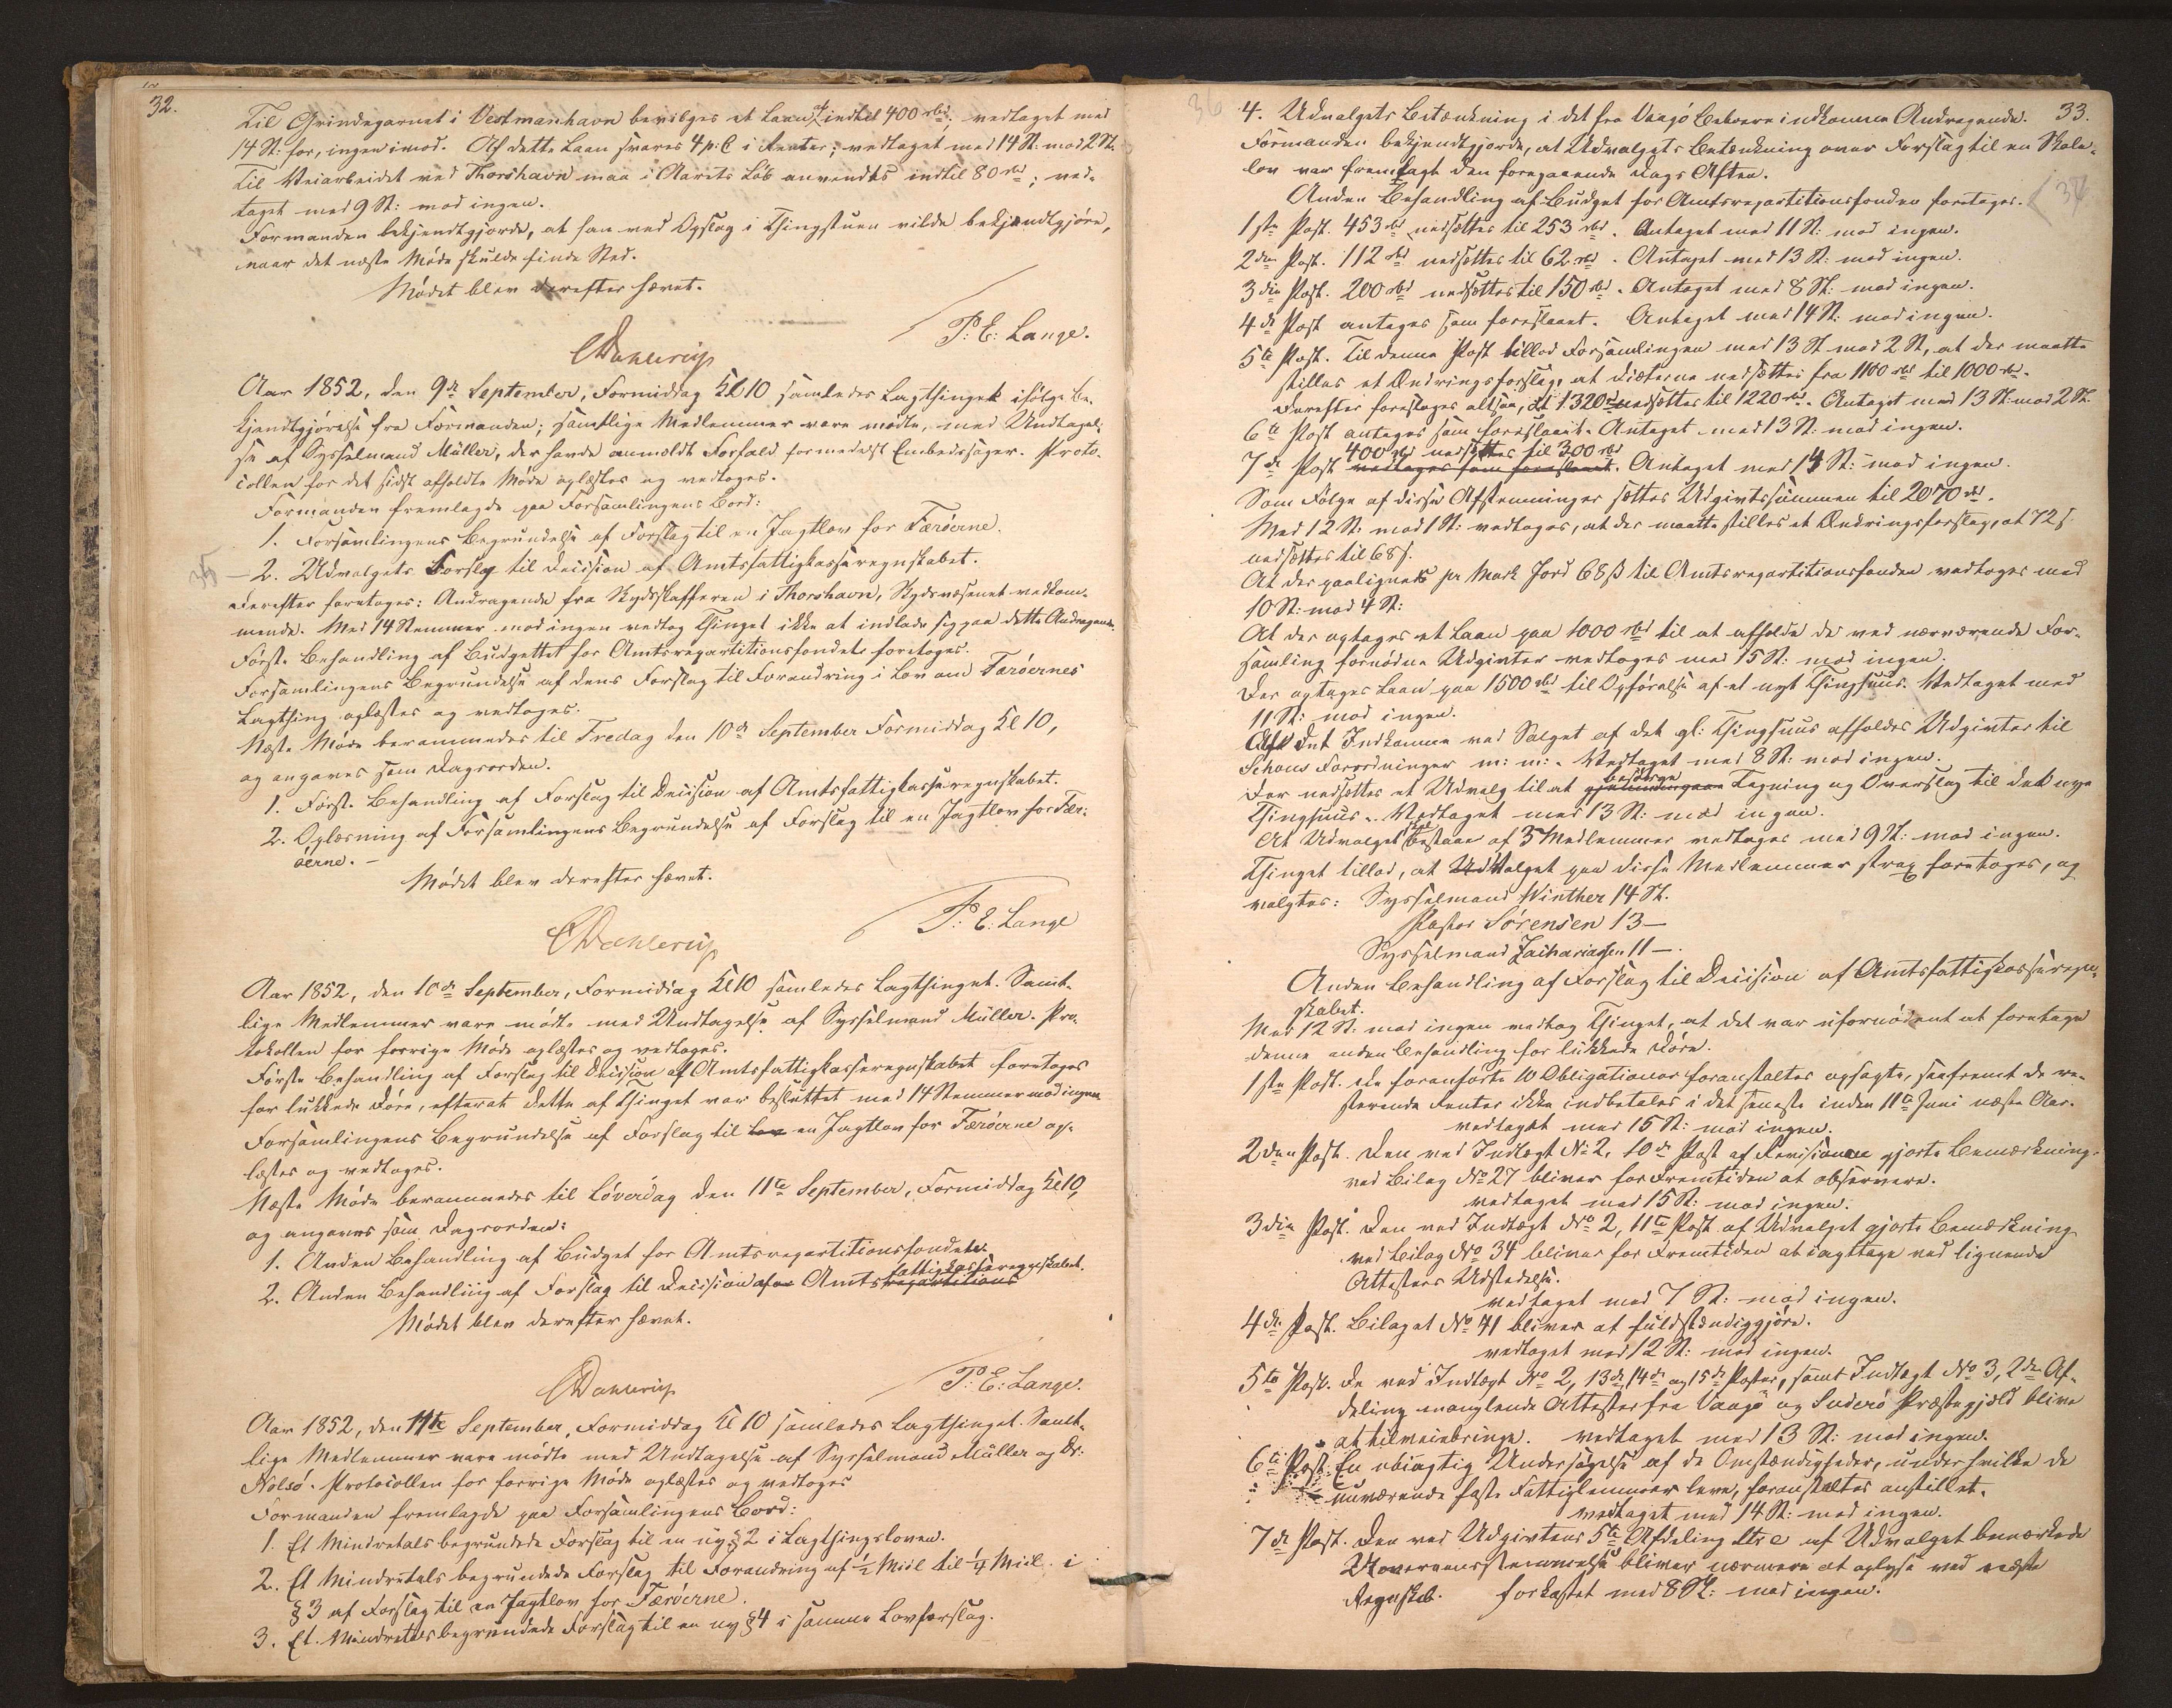 32.
Til Grindegarnet i Vestmanhavn bevilges et Laan af indtil 400 rbd, vedtaget med
14 St: for, ingen imod. Af dette Laan svares 4 p: C i Renter; vedtaget med 14 St: mod 2 St.
Til Veiarbeidet ved Thorshavn maa i Aarets Løb anvendes indtil 80 rbd; ved-
taget med 9 St: mod ingen.
Formanden bekjendtgjorde, at han ved Opslag i Thingstuen vilde bekjendtgjøre,
naar det næste Møde skulde finde Sted.
Mødet blev derefter hævet.
P: E: Lange.
CDahlerup
Aar 1852, den 9de September, Formiddag Kl 10 samledes Lagthinget ifølge Be-
kjendtgjørelse fra Formanden; samtlige Medlemmer vare mødte, med Undtagel-
se af Sysselmand Müller, der havde anmeldt Forfald formedelst Embedssager. Proto-
collen for det sidst afholdte Møde oplæstes og vedtoges.
Formanden fremlagde paa Forsamlingens Bord:
1. Forsamlingens Begrundelse af Forslag til en Jagtlov for Færøerne.
35 — 2. Udvalgets Forslag til Decision af Amtsfattigkasseregnskabet.
Derefter foretoges: Andragende fra Skydsskafferen i Thorshavn, Skydsvæsenet vedkom-
mende. Med 14 Stemmer mod ingen vedtog Thinget ikke at indlade sig paa dette Andragende.
Første Behandling af Budgettet for Amtsrepartitionsfondets foretoges.
Forsamlingens Begrundelse af dens Forslag til Forandring i Lov om Færøernes
Lagthing oplæstes og vedtoges.
Næste Møde berammedes til Fredag den 10de September Formiddag Kl 10,
og angaves som Dagsorden.
1. Første Behandling af Forslag til Decision af Amtsfattigkasseregnskabet.
2. Oplæsning af Forsamlingens Begrundelse af Forslag til en Jagtlov for Fær-
øerne. —
Mødet blev derefter hævet.
P: E: Lange
CDahlerup
Aar 1852, den 10de September, Formiddag Kl 10 samledes Lagthinget. Samt-
lige Medlemmer vare mødte med Undtagelse af Sysselmand Müller. Pro-
tokollen for forrige Møde oplæstes og vedtoges.
Første Behandling af Forslag til Decision af Amtsfattigkasseregnskabet foretoges
for lukkede Døre, efterat dette af Thinget var besluttet med 14 Stemmer mod ingen
Forsamlingens Begrundelse af Forslag til Lov en Jagtlov for Færøerne op-
læstes og vedtoges.
Næste Møde berammedes til Løverdag den 11te September, Formiddag Kl 10,
og angaves som Dagsorden:
1. Anden Behandling af Budget for Amtsrepartitionsfondet.
fattigkasseregnskabet.
2. Anden Behandling af Forslag til Decision af Amtsrepartitions
Mødet blev derefter hævet.
P: E: Lange.
CDahlerup
Aar 1852, den 11te September, Formiddag Kl 10 samledes Lagthinget. Samt-
lige Medlemmer vare mødte med Undtagelse af Sysselmand Müller og Dr:
Nolsø. Protocollen for forrige Møde oplæstes og vedtoges
Formanden fremlagde paa Forsamlingens Bord:
1. Et Mindretals begrundede Forslag til en ny § 2 i Lagthingsloven.
2. Et Mindretals begrundede Forslag til Forandring af ½ Miil til ¼ Miil i
§ 3 af Forslag til en Jagtlov for Færøerne.
3. Et Mindretals begrundede Forslag til en ny § 4 i samme Lovforslag.
36
33.
4. Udvalgets Betænkning i det fra Vaagø Beboere indkomne Andragende.
Formanden bekjendtgjorde, at Udvalgets Betænkning over Forslag til en Skole-
lov var fremlagt den foregaaende Dags Aften.
Anden Behandling af Budget for Amtsrepartitionsfonden foretoges.
1ste Post. 453 rbd nedsættes til 253 rbd. Antaget med 11 St: mod ingen.
2den Post. 112 rbd nedsættes til 62 rbd. Antaget med 13 St: mod ingen.
3die Post. 200 rbd nedsættes til 150 rbd. Antaget med 8 St: mod ingen.
4de Post antages som foreslaaet. Antaget med 14 St: mod ingen.
5te Post. Til denne Post tillod Forsamlingen med 13 St mod 2 St, at der maatte
stilles et Ændringsforslag, at Diæterne nedsættes fra 1100 rbd til 1000 rbd.
Derefter foretoges altsaa, at 1320 nedsættes til 1220 rbd. Antaget med 13 St: mod 2 St.
6te Post antages som foreslaaet. Antaget med 13 St: mod ingen.
400 rbd nedsættes til 300 rbd
7de Post vedtages som foreslaaet. Antaget med 14 St: mod ingen.
Som Følge af disse Afstemninger sættes Udgivtssummen til 2070 rbd.
Med 12 St: mod 1 St: vedtoges, at der maatte stilles et Ændringsforslag, at 72 ß
nedsættes til 68 ß.
At der paalignes pr Mark Jord 68 ß til Amtsrepartitionsfonden vedtoges med
10 St: mod 4 St:
At der optages et Laan paa 1000 rbd til at afholde de ved nærværende For-
samling fornødne Udgivter vedtoges med 15 St: mod ingen.
Der optages Laan paa 1500 rbd til Opførelse af et nyt Thinghuus. Vedtaget med
11 St: mod ingen.
Af det Indkomne ved Salget af det gl: Thinghuus afholdes Udgivter til
Schous Forordninger m: m:. Vedtaget med 8 St: mod ingen.
besørge
Der nedsættes et Udvalg til at Tegning og Overslag til det nye
Thinghuus. Vedtaget med 13 St: mod ingen.
At Udvalget skal bestaae af 3 Medlemmer vedtoges med 9 St: mod ingen.
Thinget tillod, at Valget paa disse Medlemmer strax foretoges, og
valgtes: Sysselmand Winther 14 St.
Pastor Sørensen 13 —
Sysselmand Zachariasen 11 —.
Anden Behandling af Forslag til Decision af Amtsfattigkasseregn-
skabet.
Med 12 St: mod ingen vedtog Thinget, at det var ufornødent at foretage
denne anden Behandling for lukkede Døre.
1ste Post. De foranførte 10 Obligationer foranstaltes opsagte, saafremt de re-
sterende Renter ikke indbetales i det seneste inden 11te Juni næste Aar.
vedtaget med 15 St: mod ingen.
2den Post. Den ved Indtægt No 2, 10de Post af Revisionen gjorte Bemærkning
ved Bilag No 27 bliver for Fremtiden at observere.
vedtaget med 15 St: mod ingen.
3die Post. Den ved Indtægt No 2, 11te Post af Udvalget gjorte Bemærkning
ved Bilag No 34 bliver for Fremtiden at iagttage ved lignende
Attesters Udstedelse.
vedtaget med 7 St: mod ingen.
4de Post. Bilaget No 41 bliver at fuldstændiggjøre.
vedtaget med 12 St: mod ingen.
5te Post. De ved Indtægt No 2, 13de, 14de og 15de Poster, samt Indtægt No 3, 2den Af-
deling manglende Attester fra Vaagø og Suderø Præstegjæld blive
at tilveiebringe. vedtaget med 13 St: mod ingen.
6te Post. En nøiagtig Undersøgelse af de Omstændigheder, under hvilke de
nuværende faste Fattiglemmer leve, foranstaltes anstillet.
vedtaget med 14 St: mod ingen.
7de Post. Den ved Udgivtens 5te Afdeling Litr c af Udvalget bemærkede
Uoverensstemmelse bliver nærmere at oplyse ved næste
Regnskab. forkastet med 8 St: mod ingen.